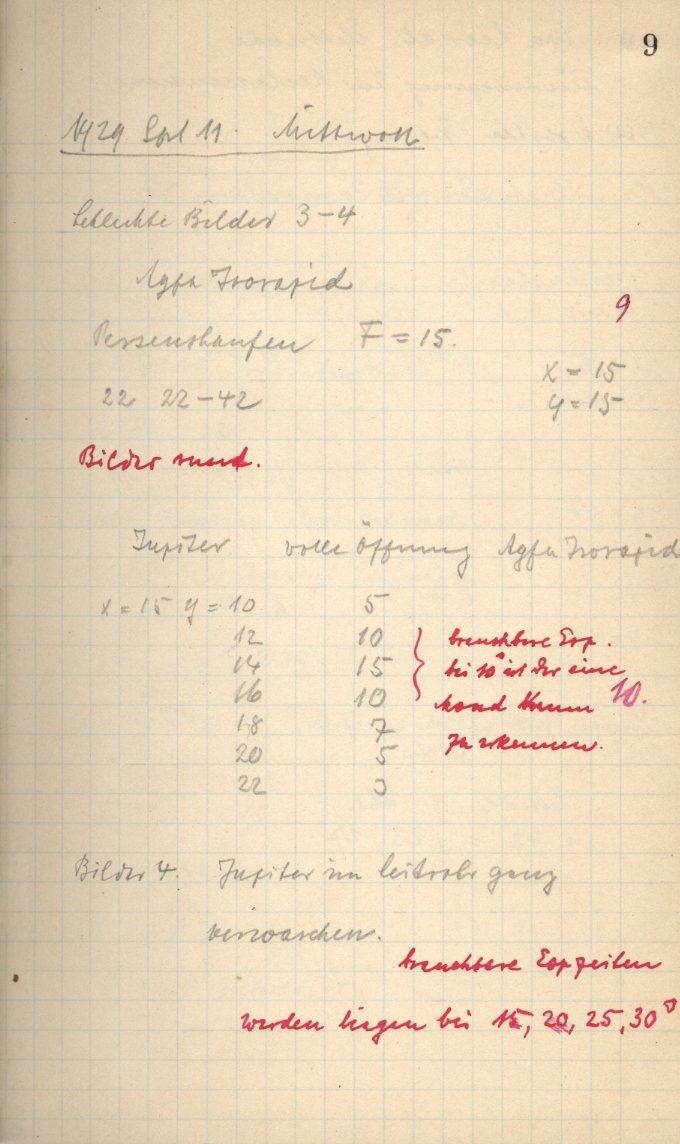 9
1929 Spt 11. Mittwoch
Schlechte Bilder 3-4
Agfa Isorapid
9
Perseushaufen F = 15.
x = 15
22 22-42 y = 15
Bilder rund.
Jupiter volle Öffnung Agfa Isorapid
x = 15 y = 10 5
12 10 brauchbare Exp.
14 15 bei 10s ist der eine
16 10 Mond kaum 10.
18 7 zu erkennen.
20 5
22 3
Bilder 4. Jupiter im Leitrohr ganz
verwaschen.
brauchbare Expzeiten
werden liegen bei 15, 20, 25, 30s